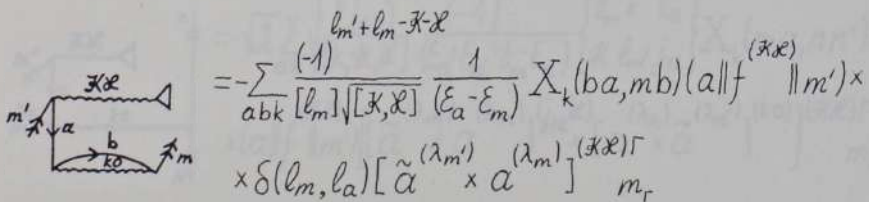 𝒦𝓗
m' a b k0 m
= -∑_{abk} \frac{(-1)^{l_{m'}+l_m-𝒦-ℋ}}{[l_m]\sqrt{[𝒦,ℋ]}} \frac{1}{(ε_a-ε_m)} X_k(ba,mb)(a‖f^{(𝒦ℋ)}‖m')×
×δ(l_m,l_a)[ã^{(λ_{m'})} × a^{(λ_m)}]^{(𝒦ℋ)Γ}_{m_Γ}